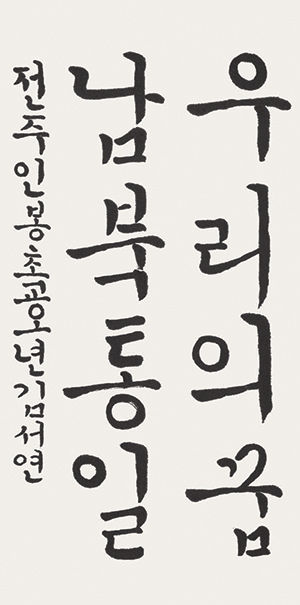 우리의꿈
남북통일
전주인봉초교오년김서연